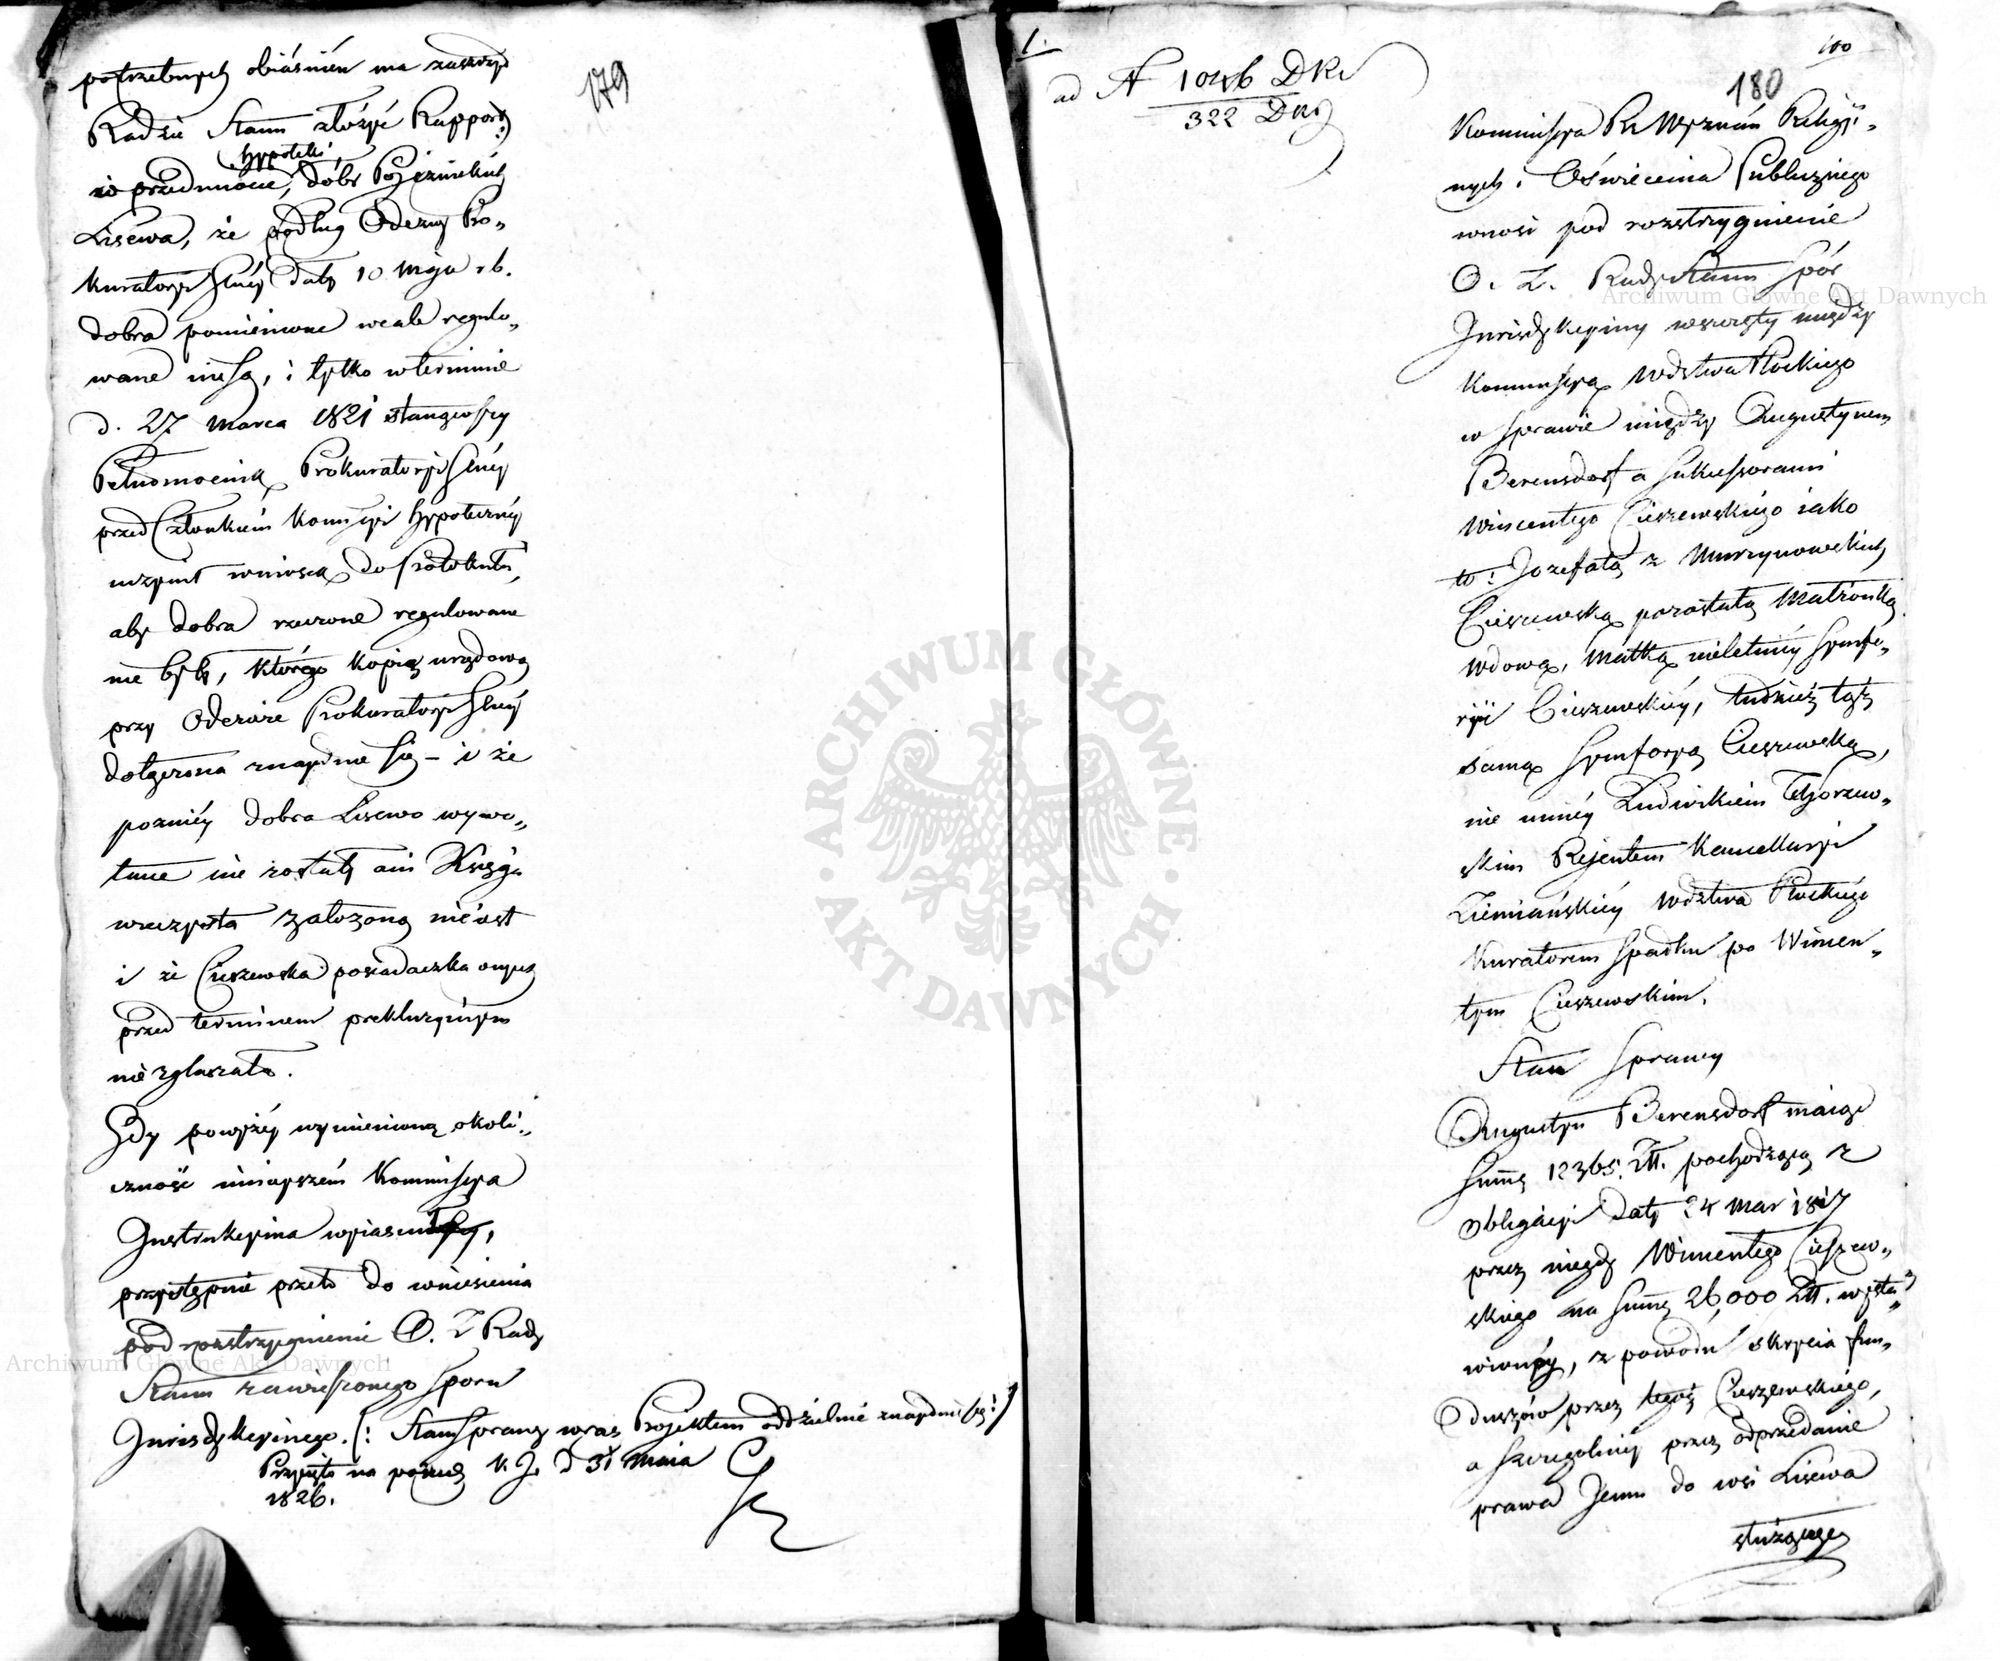 179
potrzebnych obiaśnień ma zaszczyt
Radzie Stanu złożyć Rapport
hypoteki
w przedmiocie, dóbr Pojezuickich
Lisewa, że podług Odezwy Pro-
kuratoryi Glney daty 10 Maja r.b.
dobra pomienione wcale regulo-
wane nie są, i tylko w terminie
d. 27 Marca 1821 stanąwszy
Pełnomocnik Prokuratoryi Glney
przed Członkiem Kommissyi hypoteczney
uczynił wniosek do Protokułu,
aby dobra rzeczone regulowane
nie były, którego kopia urzędowa
przy Odezwie Prokuratoryi Glney
dołączona znayduie się – i że
poźniéy dobra Lisewo wywo-
łane nie zostały ani Xięga
wieczysta założoną nie iest
i że Cieszewska posiadaczka onych
przed terminem prekluzyinym
nie zgłaszała.
Gdy powyżéy wymienioną okoli-
czność ninieyszém Kommissya
Instrukcyina wyiaśniła,
przystępnie przeto do wniesienia
pod rozstrzygnienie O. Z. Rady
Stanu zawieszonego sporu
Jurisdykcyinego. (: Stan Sprawy wraz z Projektem oddzielnie znayduie się :)
Przyięto na posiedz. K. J. d 31 Maia
1826.
1.
100
180
ad N 1046 DRS
322 DRS
Kommissya R. Wyznań Religij-
nych i Oświecenia Publicznego
wnosi pod rozstrzygnienie
O. Z. Rady Stanu spór
Jurisdykcyiny wszczęty między
Kommissyą Wdztwa Płockiego
w sprawie między Augustynem
Berensdorf a Sukcessorami
Wincentego Cieszewskiego iako
to: Jozefatą z Murzynowskich
Cieszewską pozostałą Małżonką
Wdową, Matką nieletniéy Symfo-
ryi Cieszewskiéy, tudzież tąż
samą Symforyą Cieszewską,
nie mniéy Ludwikiem Zgorzew-
skim Rejentem Kancellaryi
Ziemiańskiéy Wdztwa Płockiego
Kuratorem spadku po Wincen-
tym Cieszewskim.
Stan sprawy
Augustyn Berensdorf maiąc
Summę 12365. Złł. pochodzącą z
obligacyi daty 24 Mar 1817
przez niegdy Wincentego Cieszew-
skiego na Summę 26,000 Złł. wysta-
wionéy, z powodu skrycia fun-
duszów przez tegoż Cieszewskiego,
a szczególniéy przez odprzedanie
prawa Jemu do wsi Lisewa
służącego